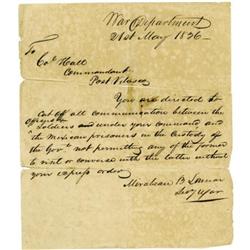 War Department
21st May 1836
To
Col Hall
Commandant
Post Velasco
You are directed to
cut off all communication between the
officers &
Soldiers under your command and
the Mexican prisoners in the Custody of
the Govt. not permitting any of the former
to visit or converse with the latter without
your express order
Mirabeau B Lamar
Secy War